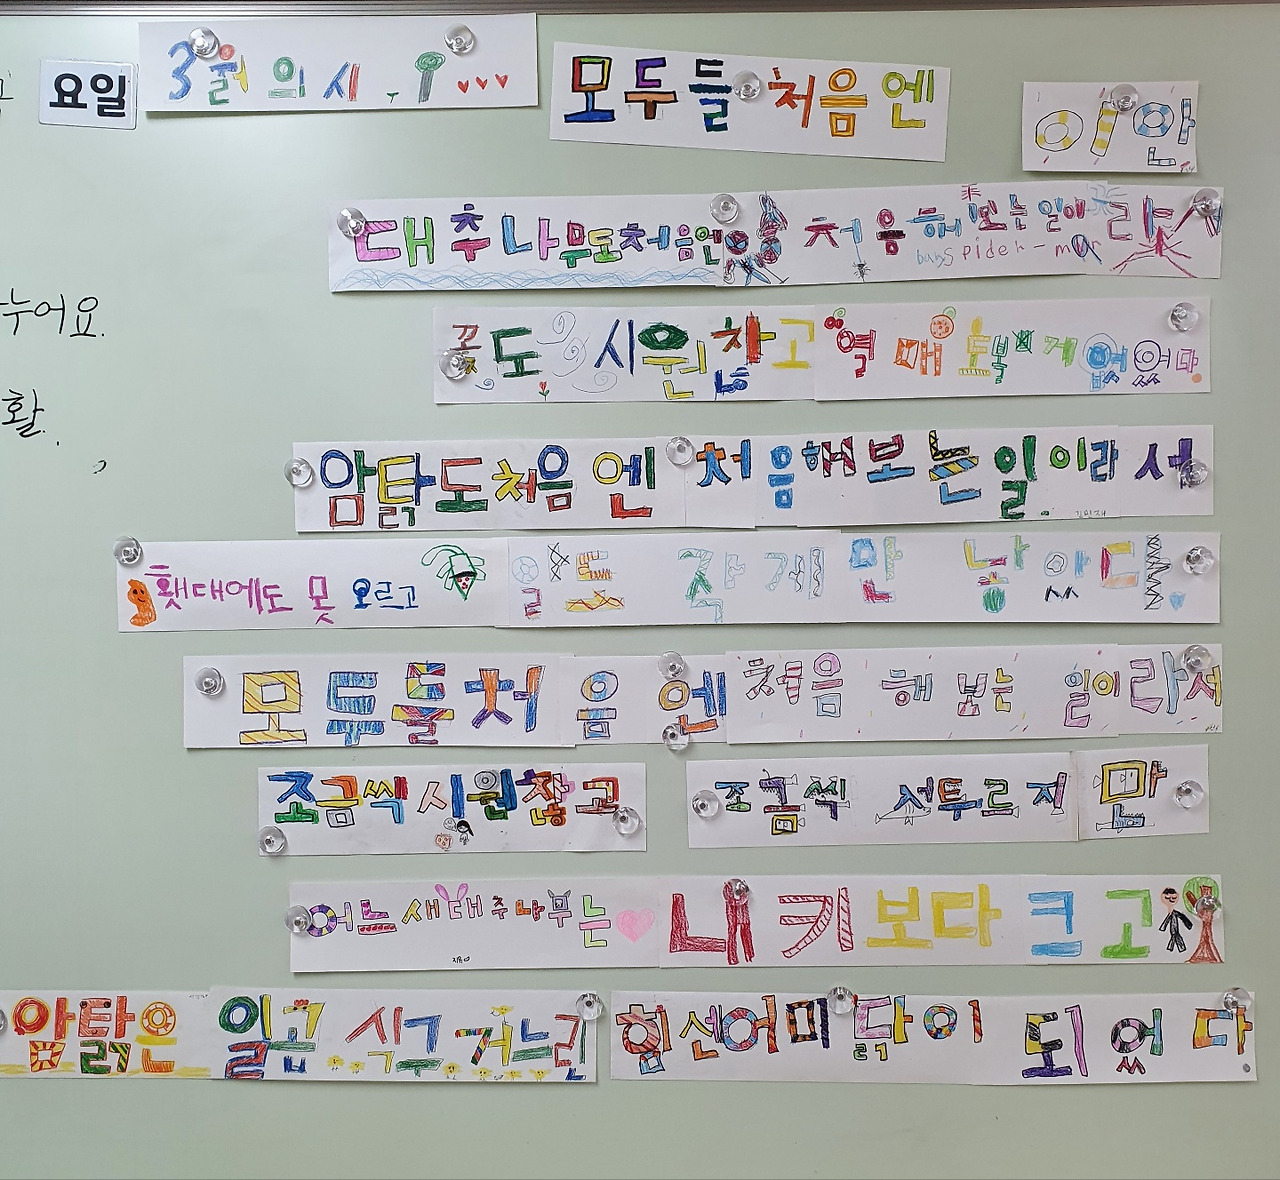 요일
3월의 시
모두들 처음엔
이안
대추나무도 처음엔 처음 해보는 일이라
baby spider-man
꽃도 시원찮고 열매토 볓게 없었다
누어요.
활.
암탉도 처음엔 처음 해보는 일이라서
김민재
횃대에도 못 오르고 알도 작게만 낳았다
모두들 처음엔 처음 해 보는 일이라서
조금씩 시원찮고 조금씩 서투르지만
어느새 대추나무는 내 키보다 크고
암탉은 일곱 식구 거느린 힘센 어미닭이 되었다